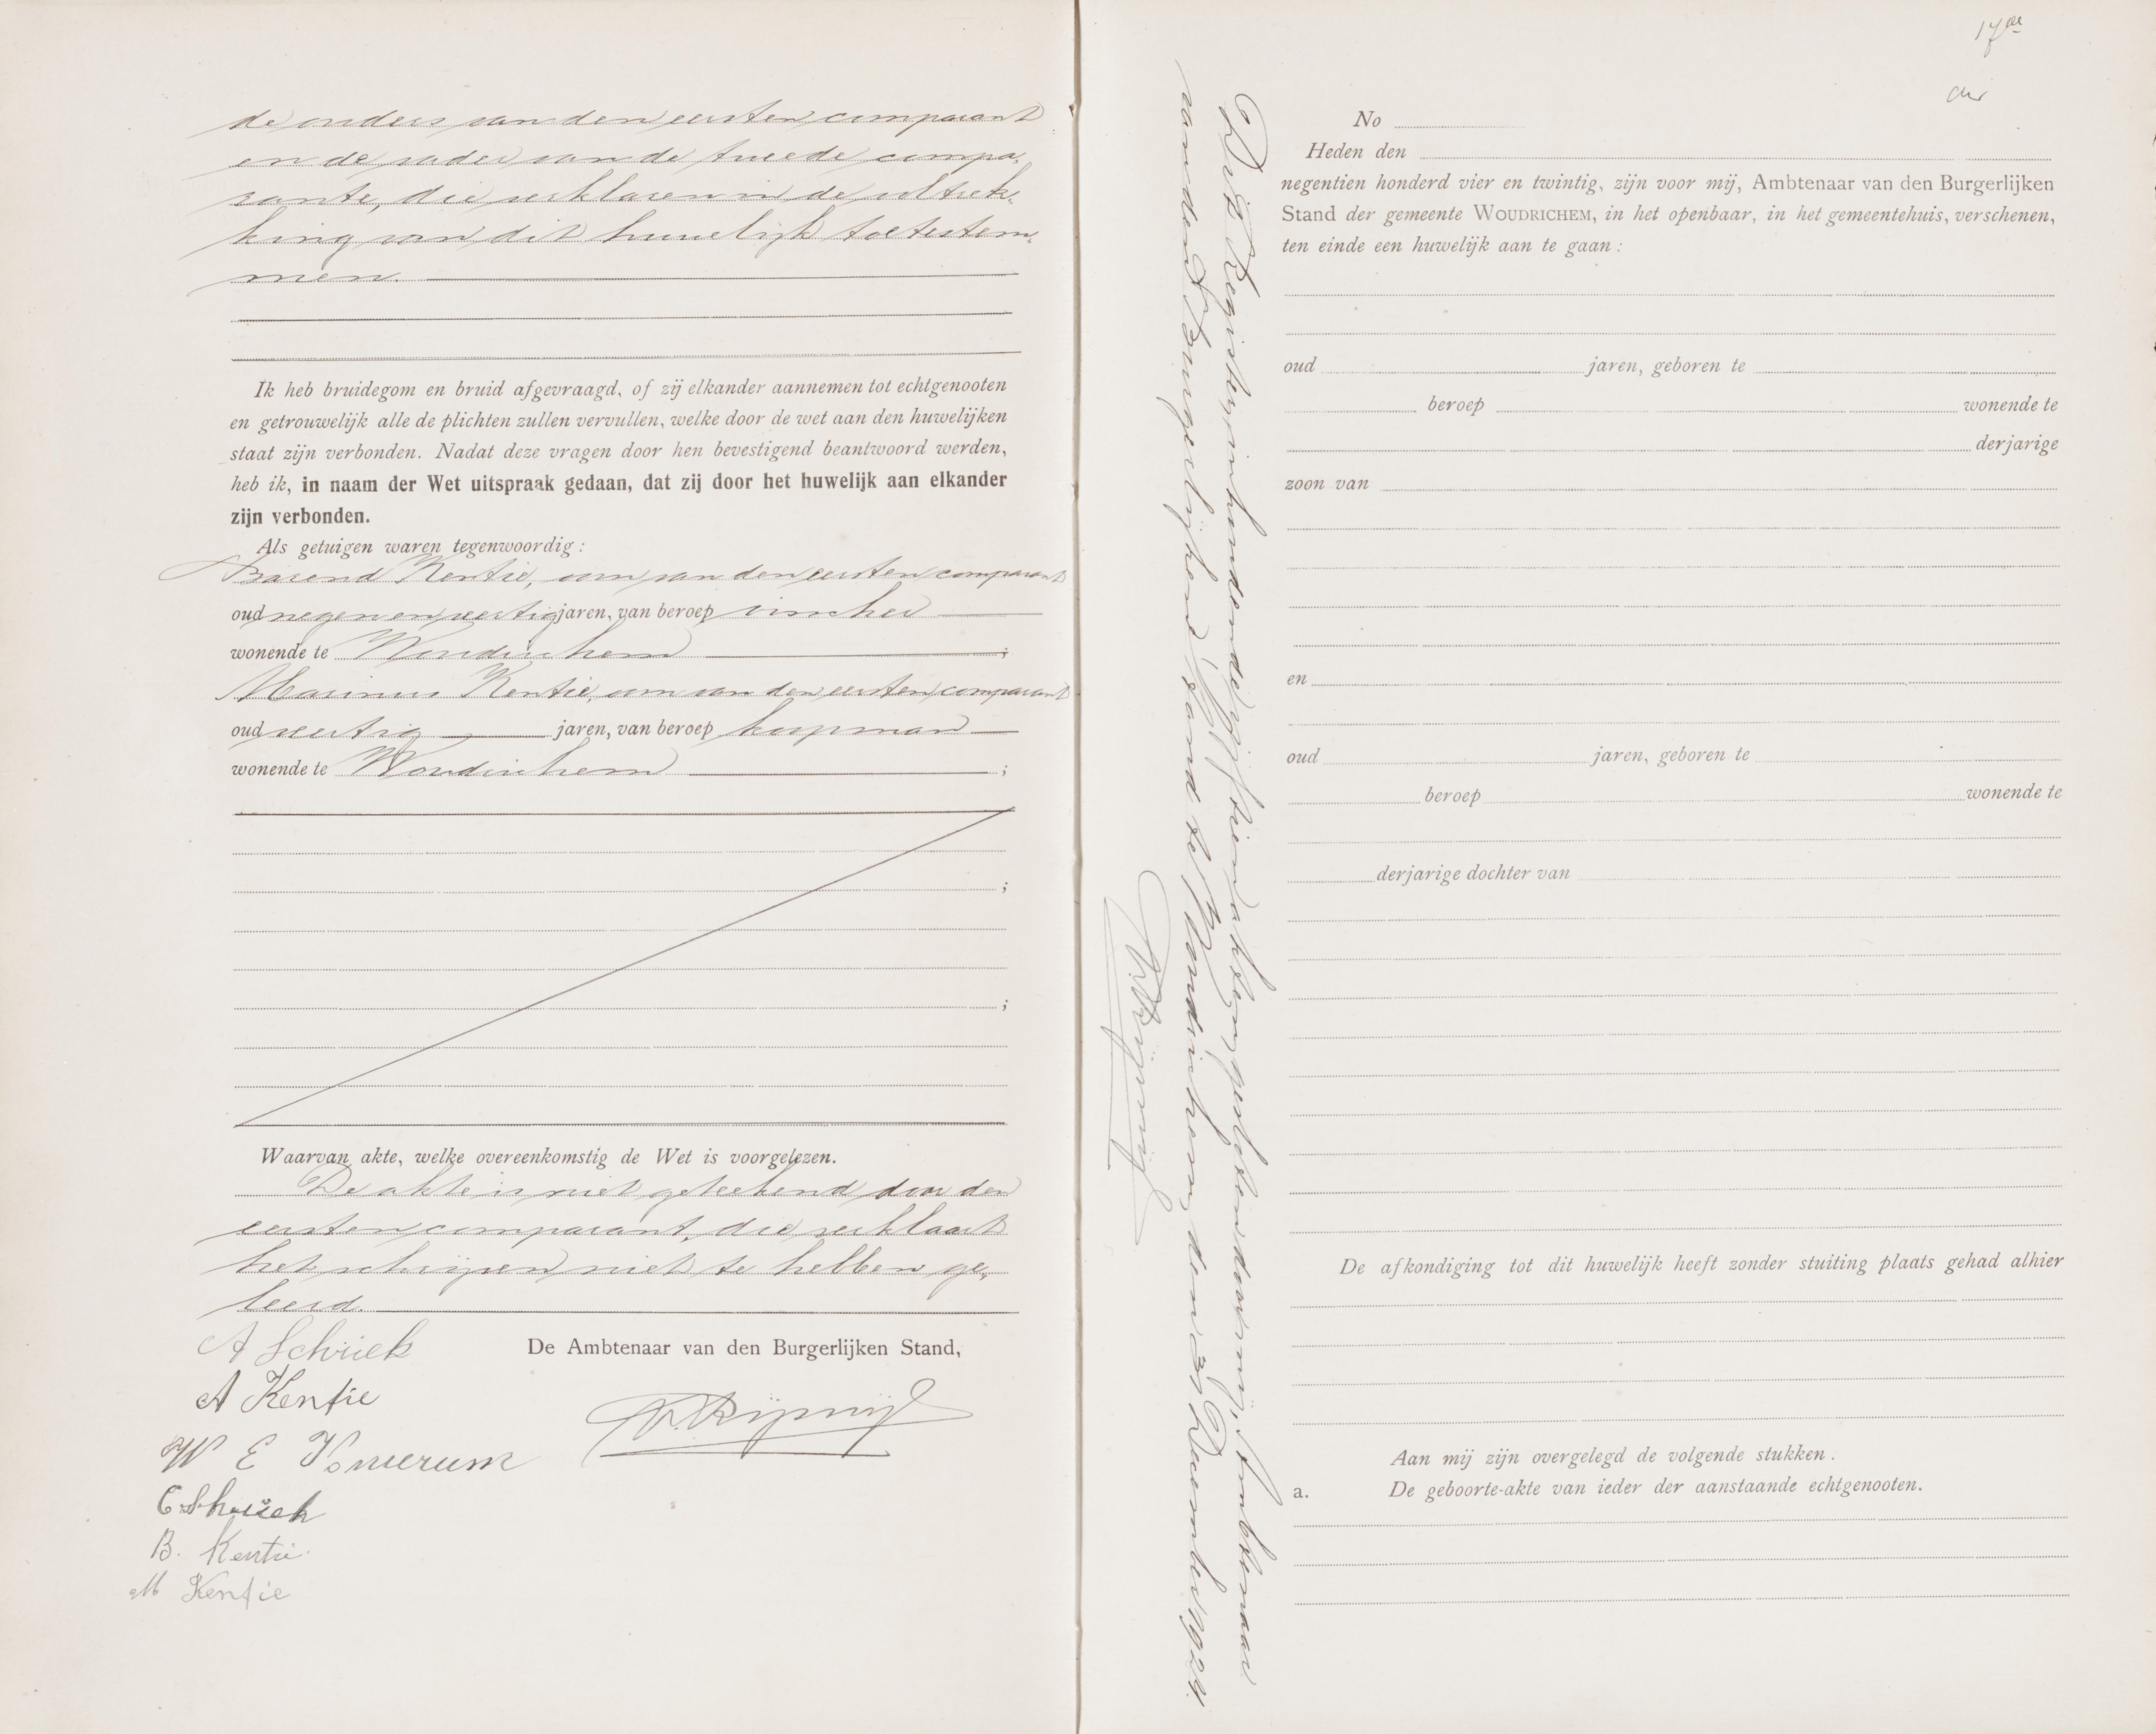 de ouders van den eersten comparant
en de vader van de tweede compa-
rante, die verklaren in de voltrek-
king van dit huwelijk toetestem-
men.
Ik heb bruidegom en bruid afgevraagd, of zij elkander aannemen tot echtgenooten
en getrouwelijk alle de plichten zullen vervullen, welke door de wet aan den huwelijken
staat zijn verbonden. Nadat deze vragen door hen bevestigend beantwoord werden,
heb ik, in naam der Wet uitspraak gedaan, dat zij door het huwelijk aan elkander
zijn verbonden.
Als getuigen waren tegenwoordig:
Barend Kentie, oom van den eersten comparant
oud negen en veertig jaren, van beroep visscher
wonende te Woudrichem ;
Marinus Kentie, oom van den eersten comparant
oud veertig jaren, van beroep koopman
wonende te Woudrichem ;
;
;
Waarvan akte, welke overeenkomstig de Wet is voorgelezen.
De akte is niet geteekend door den
eersten comparant, die verklaart
het schrijven niet te hebben ge-
leerd.
A Schriek
De Ambtenaar van den Burgerlijken Stand,
A Kentie
W E
C Schriek
B. Kentie.
M Kentie
Dit Register, inhoudende vijftien akten, gesloten door mij, Ambtenaar
van den Burgerlijken Stand te Woudrichem, den 31 December 1924.
17de
No
Heden den
negentien honderd vier en twintig, zijn voor mij, Ambtenaar van den Burgerlijken
Stand der gemeente WOUDRICHEM, in het openbaar, in het gemeentehuis, verschenen,
ten einde een huwelijk aan te gaan :
oud jaren, geboren te
beroep wonende te
derjarige
zoon van
en
oud jaren, geboren te
beroep wonende te
derjarige dochter van
De afkondiging tot dit huwelijk heeft zonder stuiting plaats gehad alhier
Aan mij zijn overgelegd de volgende stukken.
a. De geboorte-akte van ieder der aanstaande echtgenooten.